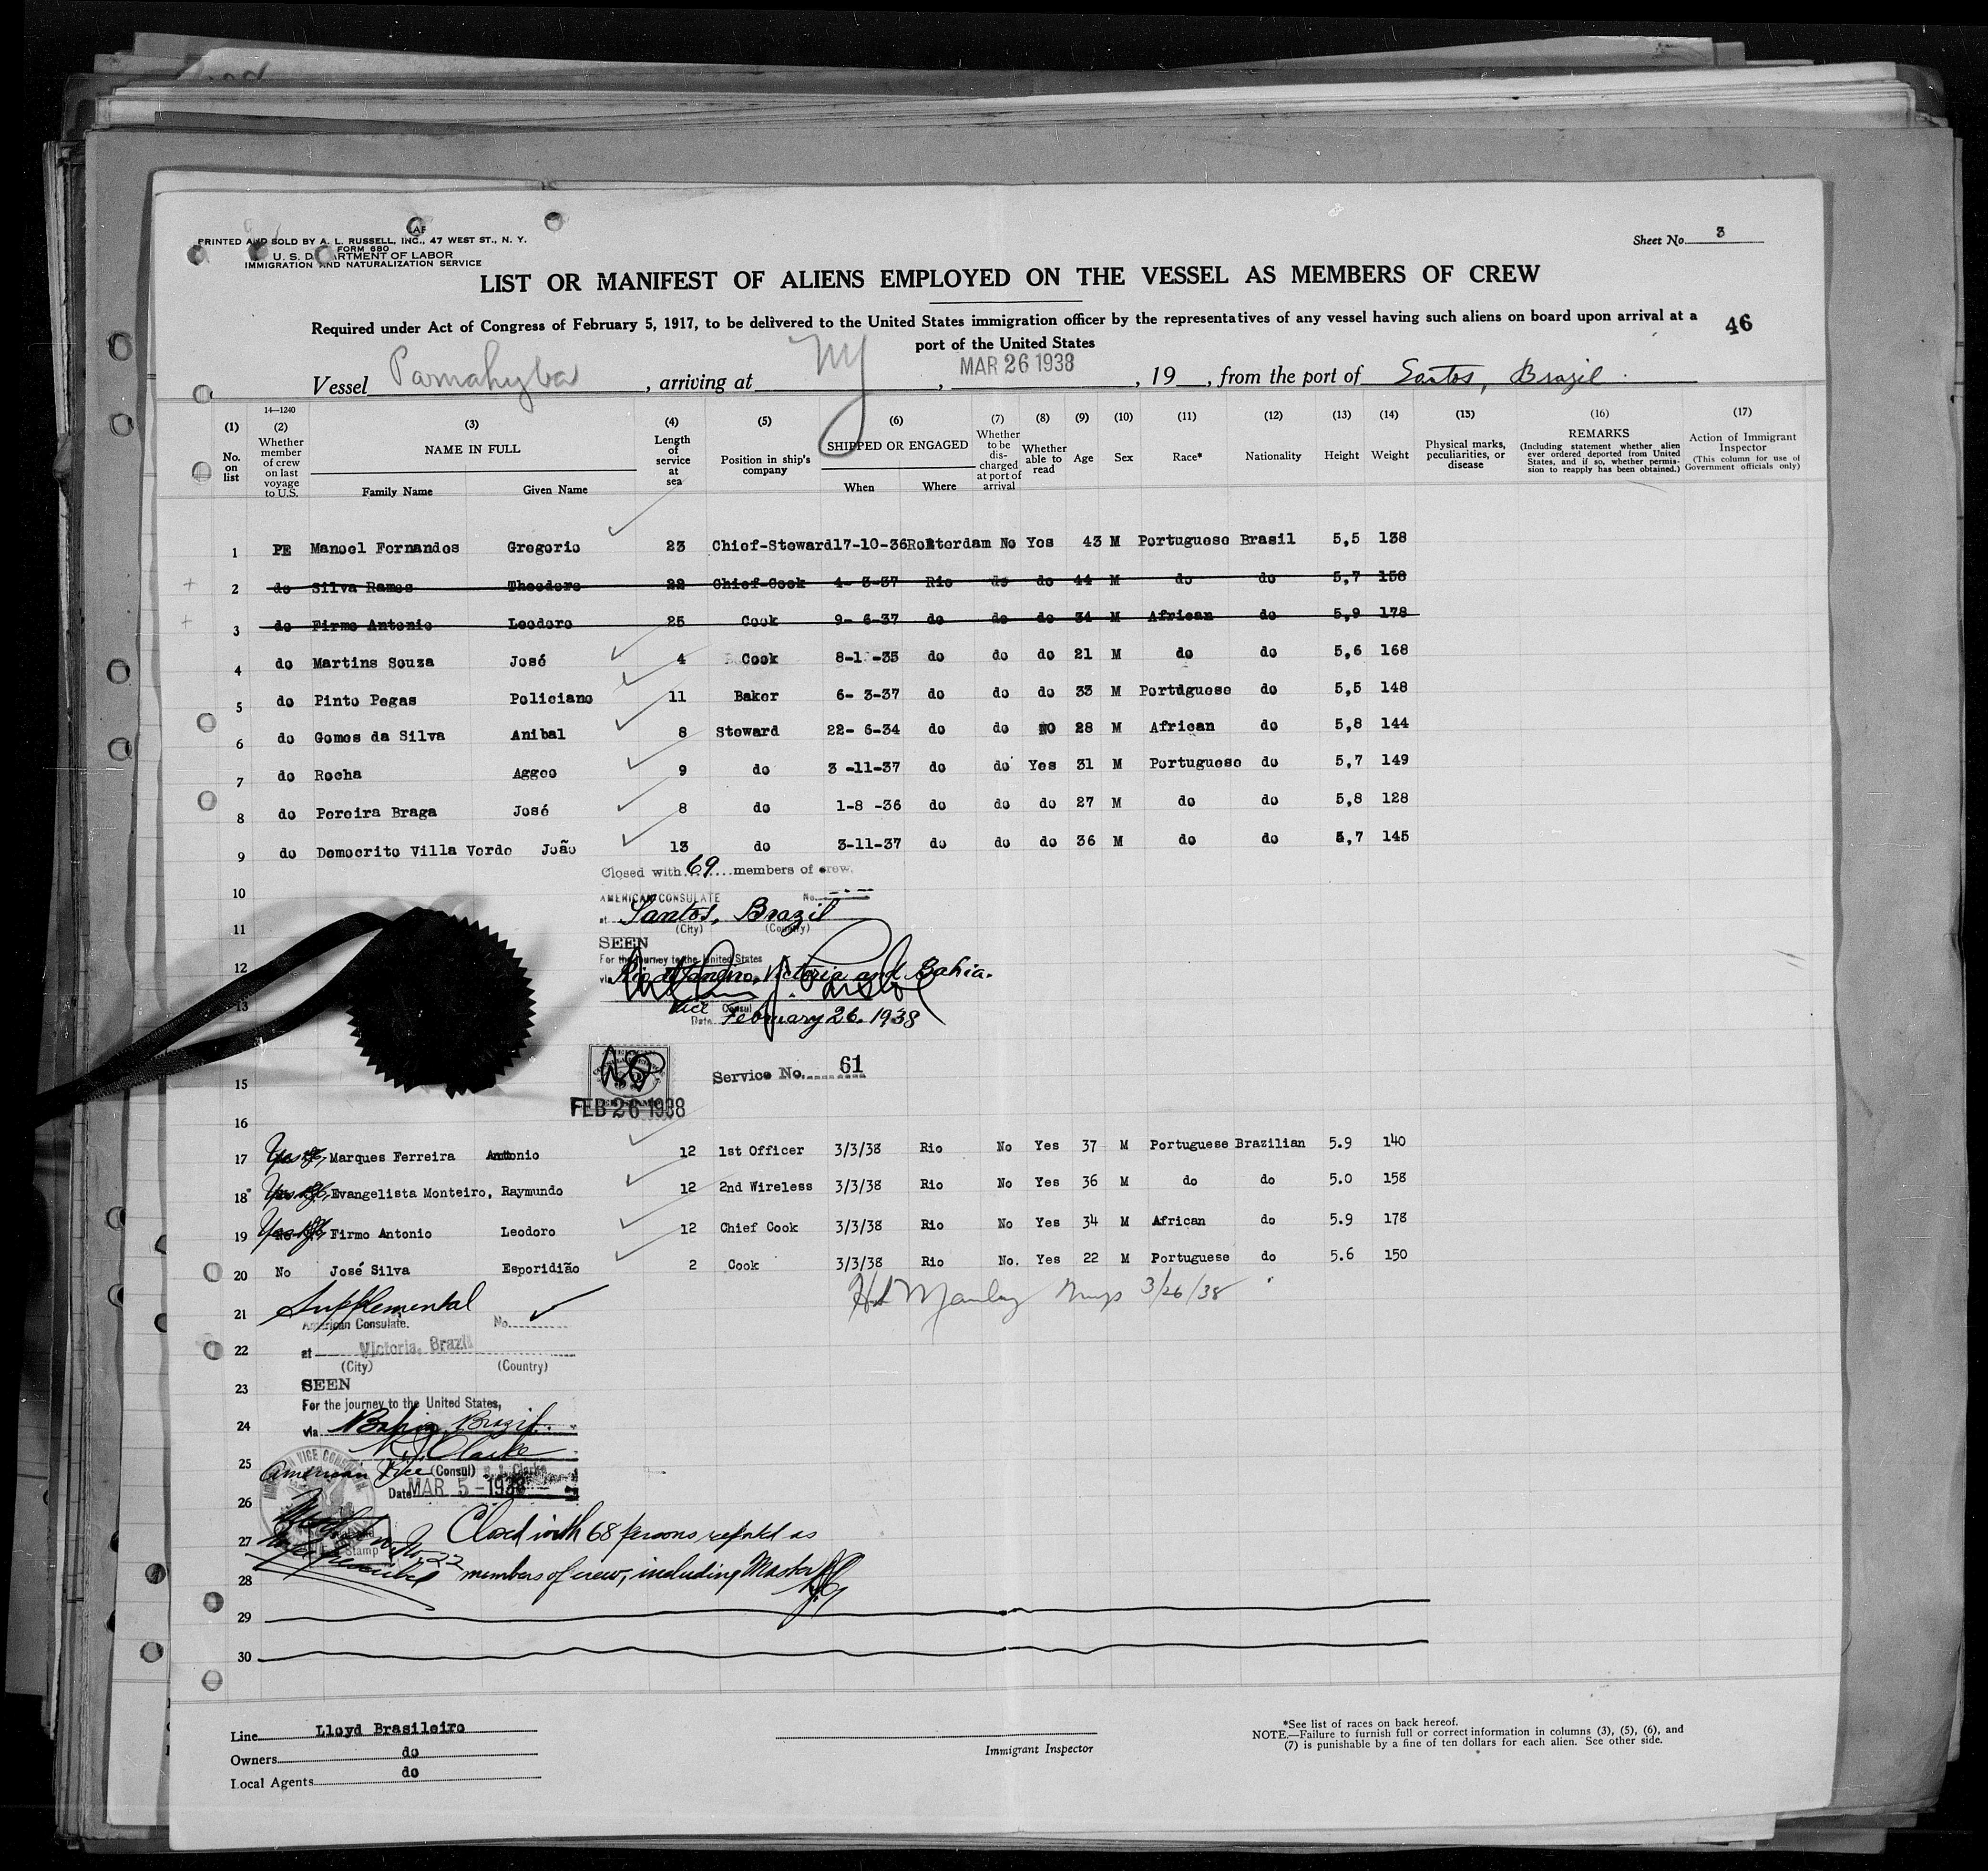 PRINTED AND SOLD BY A. L. RUSSELL, INC., 47 WEST ST., N. Y.
FORM 680
U. S. DEPARTMENT OF LABOR
IMMIGRATION AND NATURALIZATION SERVICE
Sheet No. 3
LIST OR MANIFEST OF ALIENS EMPLOYED ON THE VESSEL AS MEMBERS OF CREW
Required under Act of Congress of February 5, 1917, to be delivered to the United States immigration officer by the representatives of any vessel having such aliens on board upon arrival at a
port of the United States
46
Vessel Parnahyba, arriving at NY, MAR 26 1938, 19, from the port of Santos, Brazil.
14—1240
(1) (2) (3) (4) (5) (6) (7) (8) (9) (10) (11) (12) (13) (14) (15) (16) (17)
No. on list
Whether member of crew on last voyage to U.S.
NAME IN FULL
Family Name Given Name
Length of service at sea
Position in ship's company
SHIPPED OR ENGAGED
When Where
Whether to be discharged at port of arrival
Whether able to read
Age
Sex
Race*
Nationality
Height
Weight
Physical marks, peculiarities, or disease
REMARKS
(Including statement whether alien ever ordered deported from United States, and if so, whether permission to reapply has been obtained.)
Action of Immigrant Inspector
(This column for use of Government officials only)
1 PE Manoel Fernandes Gregorio 23 Chief-Steward 17-10-36 Rotterdam No Yes 43 M Portuguese Brasil 5,5 138
+ 2 do Silva Ramos Theodoro 22 Chief-Cook 4- 3-37 Rio do do 44 M do do 5,7 158
+ 3 do Firmo Antonio Leodoro 25 Cook 9- 6-37 do do do 34 M African do 5,9 178
4 do Martins Souza José 4 Cook 8-1 -35 do do do 21 M do do 5,6 168
5 do Pinto Pegas Policiano 11 Baker 6- 3-37 do do do 33 M Portuguese do 5,5 148
6 do Gomes da Silva Anibal 8 Steward 22- 6-34 do do NO 28 M African do 5,8 144
7 do Rocha Aggeo 9 do 3 -11-37 do do Yes 31 M Portuguese do 5,7 149
8 do Pereira Braga José 8 do 1-8 -36 do do do 27 M do do 5,8 128
9 do Democrito Villa Verde João 13 do 3-11-37 do do do 36 M do do 5,7 145
Closed with 69 members of crew.
10
AMERICAN CONSULATE No.
at Santos, Brazil
11
(City) (Country)
SEEN
For the journey to the United States
12
via Rio de Janeiro, Victoria and Bahia.
13
Vice Consul
Date February 26, 1938
15
Service No. 61
FEB 26 1938
16
17 Yes Marques Ferreira Antonio 12 1st Officer 3/3/38 Rio No Yes 37 M Portuguese Brazilian 5.9 140
18 Yes Evangelista Monteiro, Raymundo 12 2nd Wireless 3/3/38 Rio No Yes 36 M do do 5.0 158
19 Yes Firmo Antonio Leodoro 12 Chief Cook 3/3/38 Rio No Yes 34 M African do 5.9 178
20 No José Silva Esporidião 2 Cook 3/3/38 Rio No. Yes 22 M Portuguese do 5.6 150
Supplemental
3/26/38
21
American Consulate. No.
22
at Victoria, Brazil
(City) (Country)
23
SEEN
For the journey to the United States,
24
via Bahia, Brazil.
Clarke
25
American Vice (Consul)
Date MAR 5 - 1938
26
27
Closed with 68 persons, reported as
28
members of crew, including Master
29
30
Line Lloyd Brasileiro
Owners do
Local Agents do
Immigrant Inspector
*See list of races on back hereof.
NOTE.—Failure to furnish full or correct information in columns (3), (5), (6), and
(7) is punishable by a fine of ten dollars for each alien. See other side.